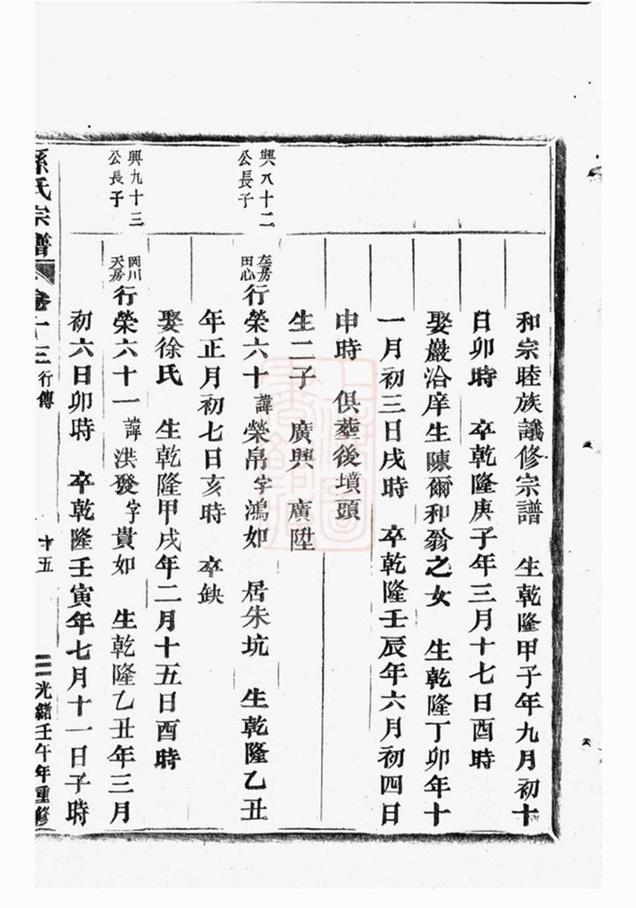 和宗睦族議修宗譜　生乾隆甲子年九月初十
日卯時　卒乾隆庚子年三月十七日酉時
娶嚴治庠生陳爾和翁之女　生乾隆丁卯年十
一月初三日戌時　卒乾隆壬辰年六月初四日
申時　俱塟後墳頭
生二子　廣興　廣陞
興八十二
公長子
左房
田心
行榮六十諱榮帛字鴻如　居朱坑　生乾隆乙丑
年正月初七日亥時　卒缺
娶徐氏　生乾隆甲戌年二月十五日酉時
興九十三
公長子
岡川
天房
行榮六十一諱洪發字貴如　生乾隆乙丑年三月
初六日卯時　卒乾隆壬寅年七月十一日子時
孫氏宗譜　卷十三　行傳　十五　光緒壬午年重修